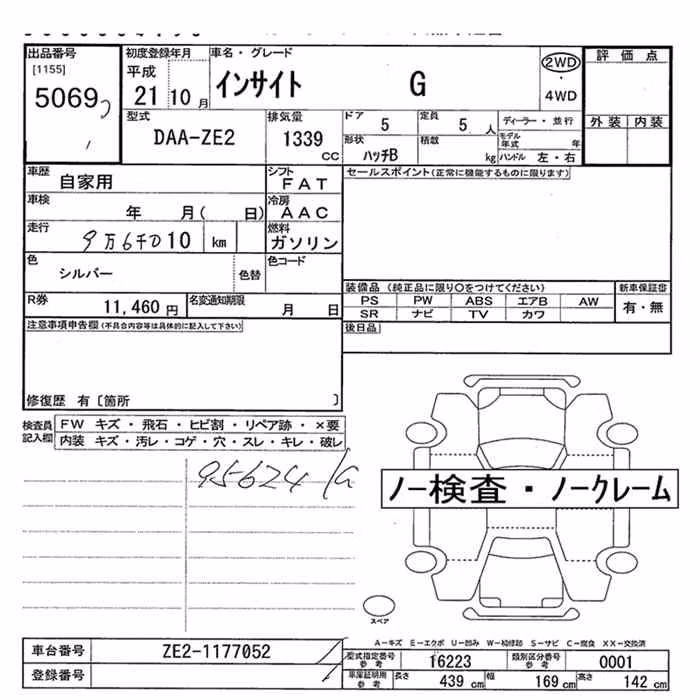 出品番号 初度登録年月 車名・グレード 評価点
[1155] 平成 インサイト G 2WD
5069 21 10 月 ・ 4WD
型式 排気量 ドア 定員 ディーラー・並行 外装 内装
DAA-ZE2 1339 cc 5 5 人 モデル年式 年
形状 積載
ハッチB kg ハンドル 左・右
車歴 自家用 シフト FAT セールスポイント(正常に機能するものに限ります)
車検 年 月( 日) 冷房 AAC
走行 9万6千010 km 燃料 ガソリン
色 シルバー 色替 色コード
装備品 (純正品に限り○をつけてください) 新車保証書
R券 11,460 円 名変通知期限 月 日 PS PW ABS エアB AW 有・無
SR ナビ TV カワ
注意事項申告欄(不具合内容等は具体的に記入して下さい) 後日品
修復歴 有〔箇所 〕
検査員 FW キズ・飛石・ヒビ割・リペア跡・×要
記入欄 内装 キズ・汚レ・コゲ・穴・スレ・キレ・破レ
95624
ノー検査・ノークレーム
スペア
A-キズ E-エクボ U-凹み W-補修跡 S-サビ C-腐食 XX-交換済
車台番号 ZE2-1177052 型式指定番号 参考 16223 類別区分番号 参考 0001
登録番号 車庫証明用 参考 長さ 439 cm 幅 169 cm 高さ 142 cm